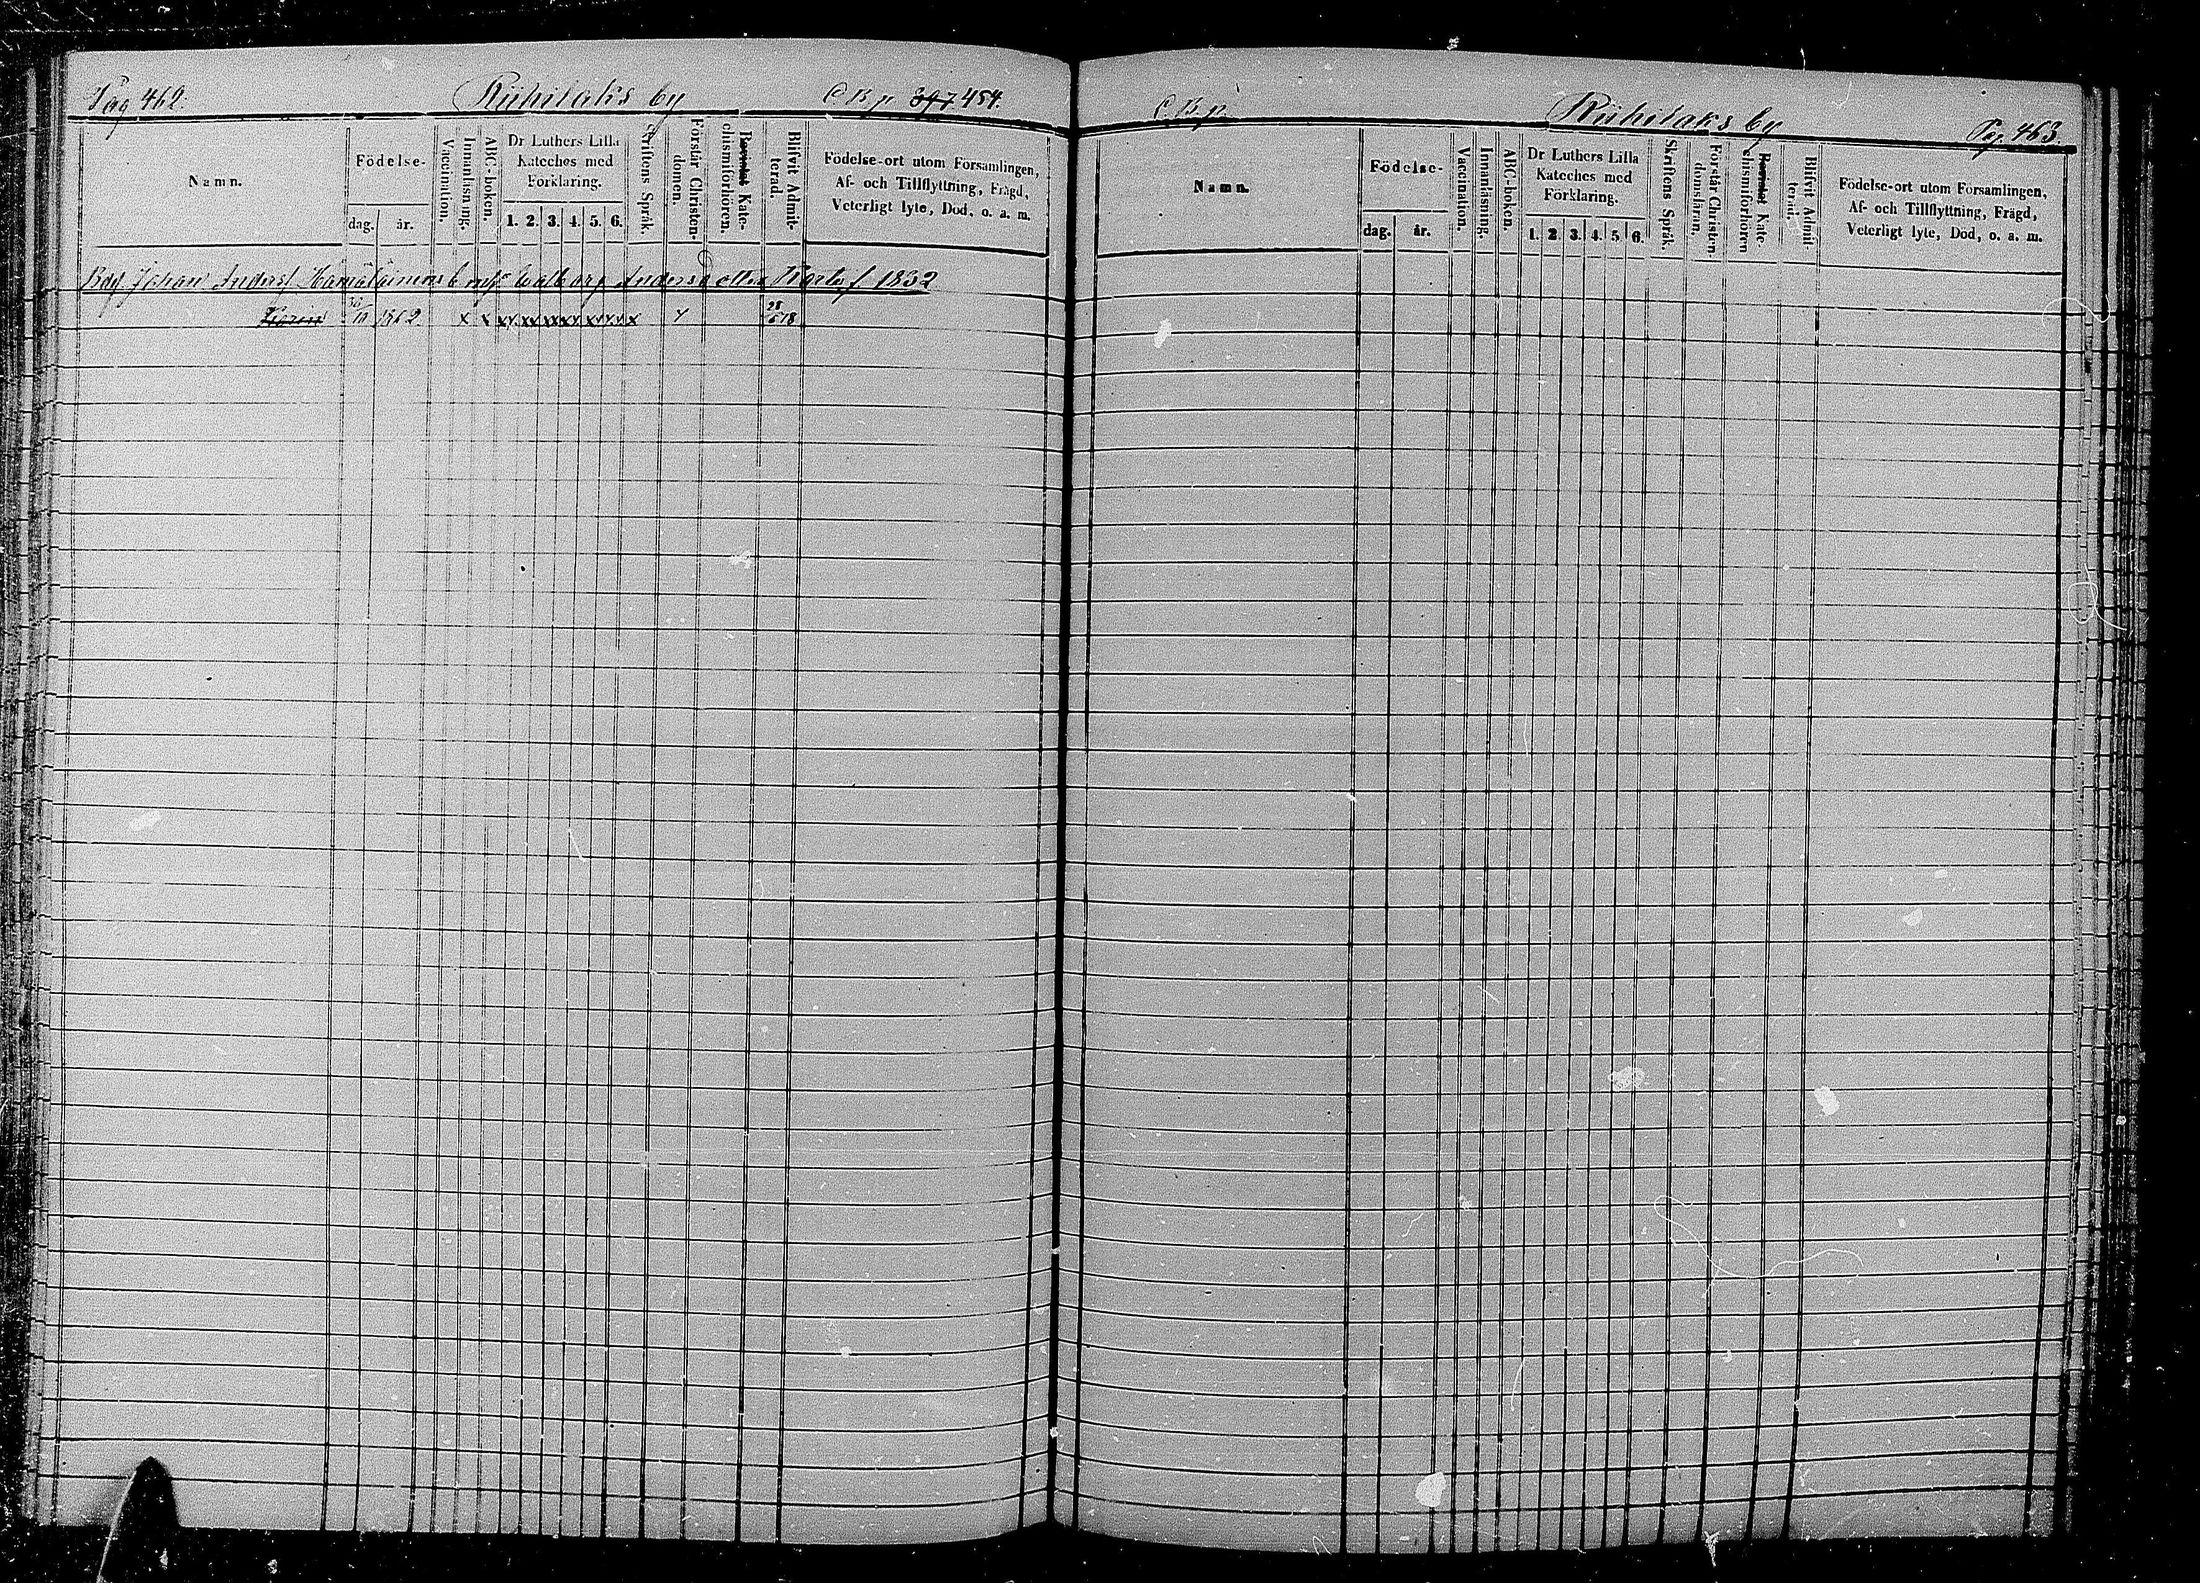 Pag 462. Riihilaks by C B p 397 454.
Namn.
Födelse-
dag. år.
Vaccination.
Innanläsning.
ABC-boken.
Dr Luthers Lilla
Kateches med
Förklaring.
1. 2. 3. 4. 5. 6.
Skriftens Språk.
Förstår Christen-
domen.
Bevistat Kate-
chismiförhören.
Blifvit Admit-
terad.
Födelse-ort utom Församlingen,
Af- och Tillflyttning, Frägd,
Veterligt lyte, Död, o. a. m.
Johan Andersf Hämäläinens Walborg Andersdotter 1832
30/10 1862. x x xx xx xx xx xx xx x 28/6 78
C. B. p. Riihilaks by Pag. 463.
Namn.
Födelse-
dag. år.
Vaccination.
Innanläsning.
ABC-boken.
Dr Luthers Lilla
Kateches med
Förklaring.
1. 2. 3. 4. 5. 6.
Skriftens Språk.
Förstår Christen-
domsläran.
Bevistat Kate-
chismiförhören
Blifvit Admit-
terad.
Födelse-ort utom Församlingen,
Af- och Tillflyttning, Frägd,
Veterligt lyte, Död, o. a. m.